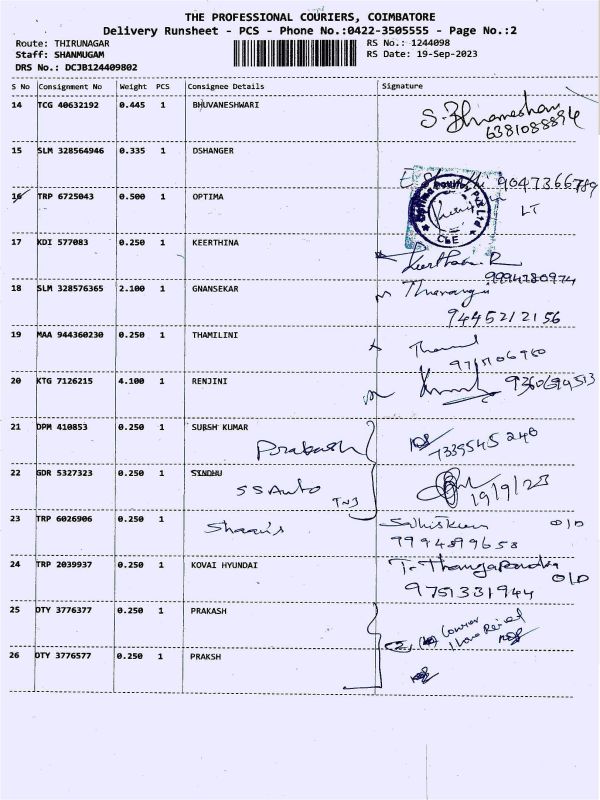 THE PROFESSIONAL COURIERS, COIMBATORE
Delivery Runsheet - PCS - Phone No.:0422-3505555 - Page No.:2
Route: THIRUNAGAR
RS No.: 1244098
Staff: SHANMUGAM
RS Date: 19-Sep-2023
DRS No.: DCJB124409802
S No Consignment No Weight PCS Consignee Details Signature
14 TCG 40632192 0.445 1 BHUVANESHWARI
6381088894
15 SLM 328564946 0.335 1 DSHANGER
9047366789
16 TRP 6725043 0.500 1 OPTIMA
LT
CBE
17 KDI 577083 0.250 1 KEERTHINA
Keerthana R
9994280974
18 SLM 328576365 2.100 1 GNANSEKAR
9445212156
19 MAA 944360230 0.250 1 THAMILINI
20 KTG 7126215 4.100 1 RENJINI
21 DPM 410853 0.250 1 SUBSH KUMAR
Prabash
7339545240
22 GDR 5327323 0.250 1 SINDHU
SS Auto
19/9/23
23 TRP 6026906 0.250 1
9994899658
24 TRP 2039937 0.250 1 KOVAI HYUNDAI
9751331944
25 DTY 3776377 0.250 1 PRAKASH
26 DTY 3776577 0.250 1 PRAKSH